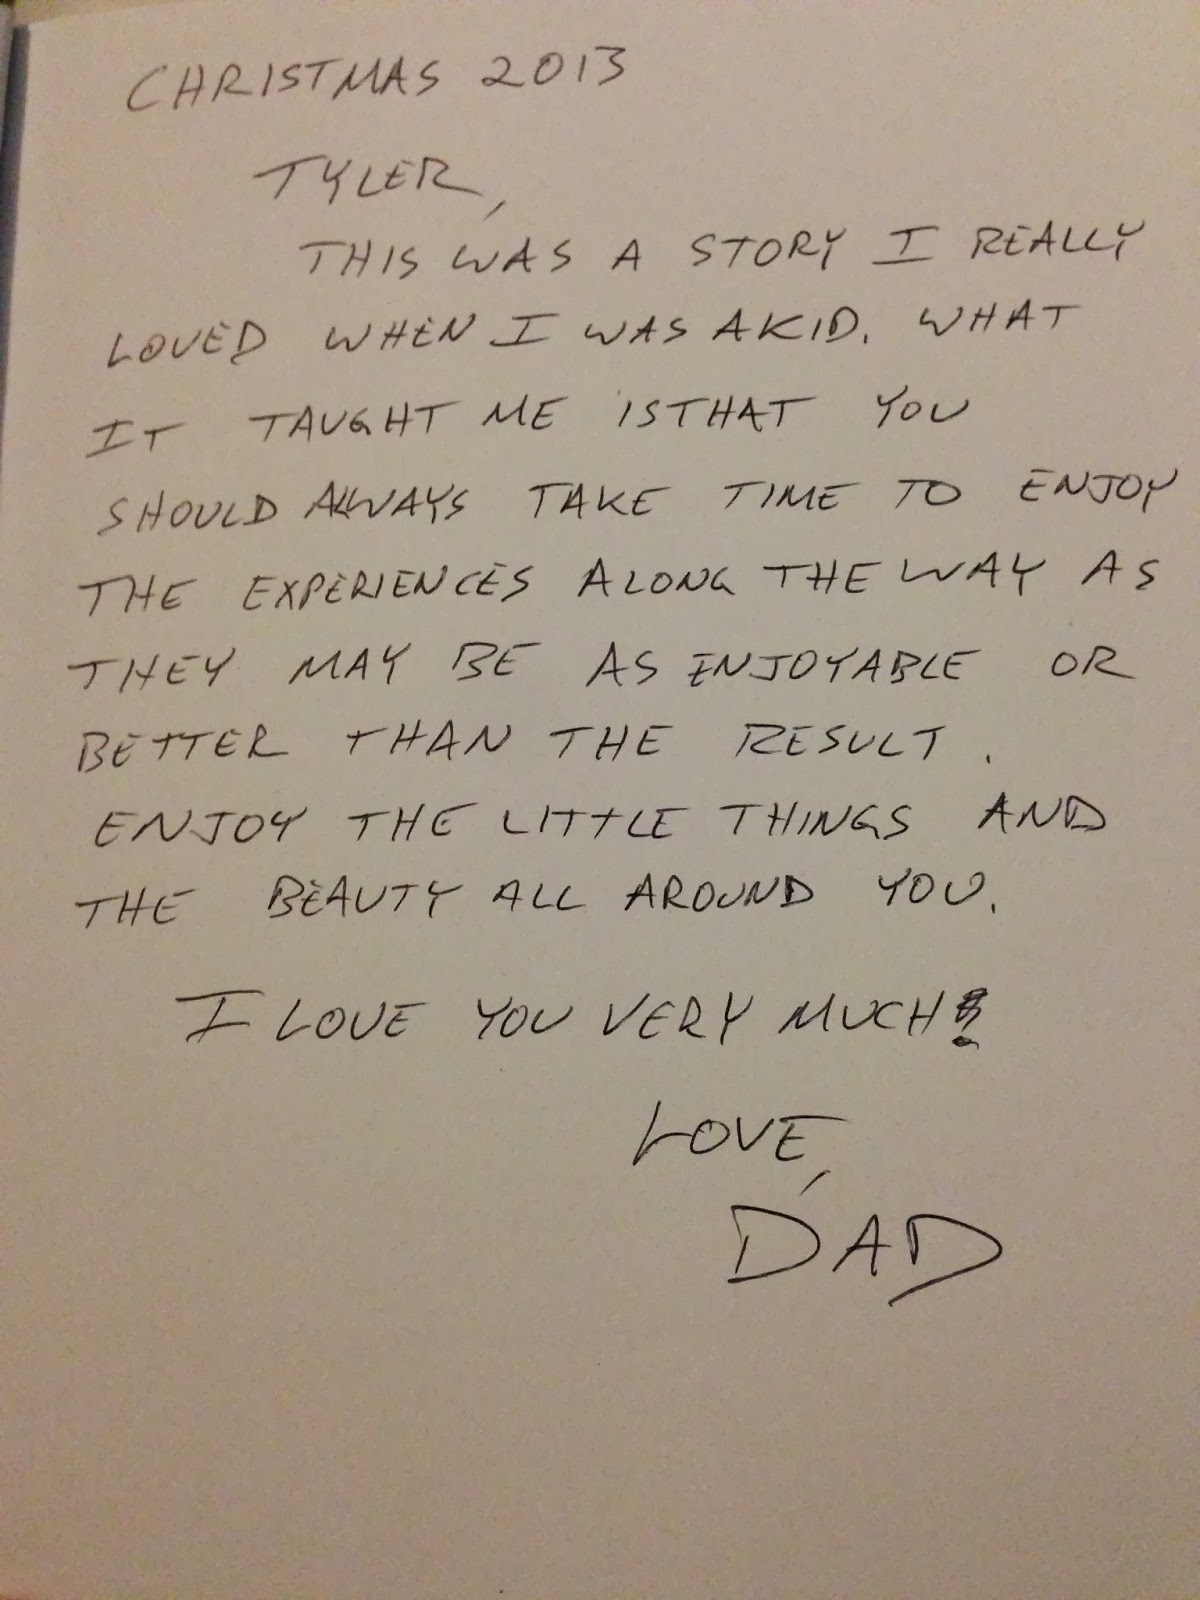 CHRISTMAS 2013
TYLER,
THIS WAS A STORY I REALLY
LOVED WHEN I WAS A KID. WHAT
IT TAUGHT ME IS THAT YOU
SHOULD ALWAYS TAKE TIME TO ENJOY
THE EXPERIENCES ALONG THE WAY AS
THEY MAY BE AS ENJOYABLE OR
BETTER THAN THE RESULT.
ENJOY THE LITTLE THINGS AND
THE BEAUTY ALL AROUND YOU.
I LOVE YOU VERY MUCH!
LOVE,
DAD